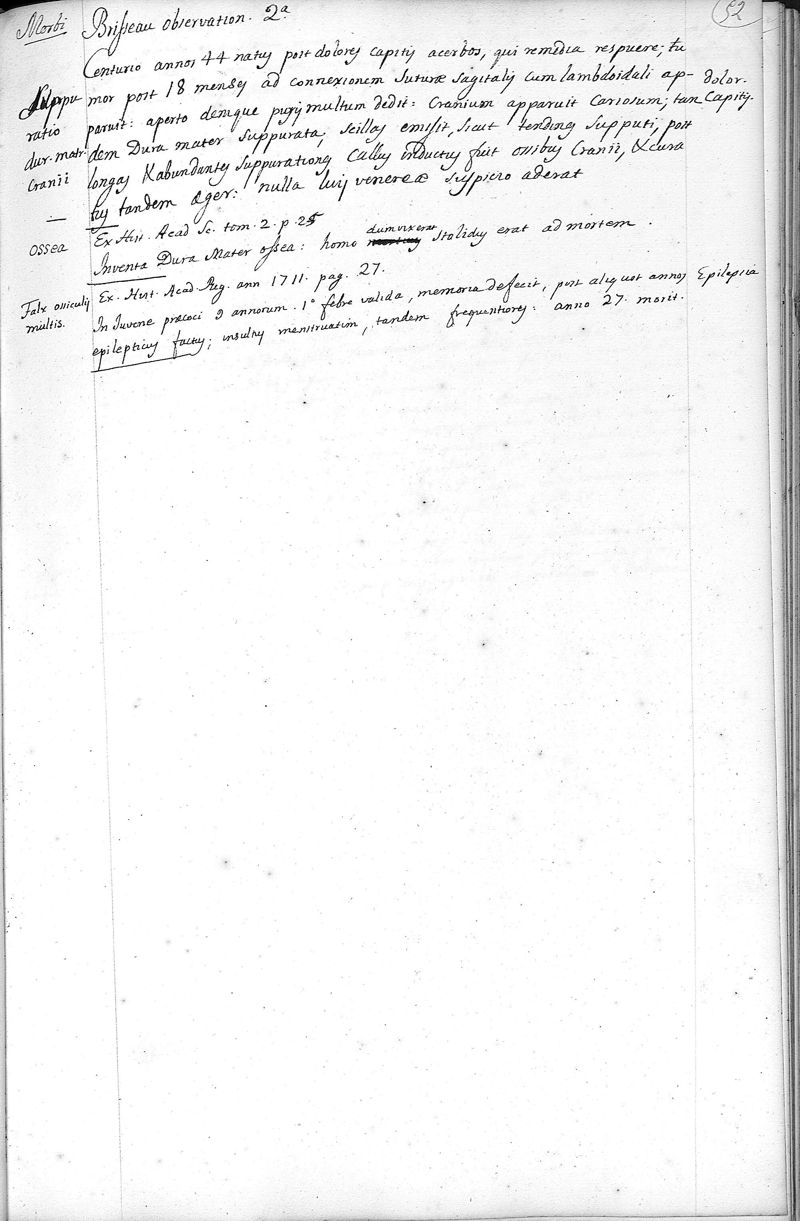 52
Morbi Brisseau observation. 2a
Centurio annos 44 natus post dolores capitis acerbos, qui remedia respuere; tu
mor post 18 menses ad connexionem Suturæ Sagitalis cum lambdoidali ap- dolor.
Suppu paruit: aperto denique puris multum dedit: Cranium apparuit Cariosum; tan Capitis.
ratio dem Dura mater suppurata, scillas emisit, sicut tendines supputi, post
dur. matr. longas & abundantes suppurationes Callus inductus fuit ossibus Cranii, & cura
Cranii tus tandem æger: nulla luis venereæ suspicio aderat
— Ex Hist. Acad Sc. tom. 2. p. 25
ossea Inventa Dura Mater ossea: homo dum vixerat stolidus erat ad mortem.
Ex. Hist. Acad. Reg. ann 1711. pag. 27.
Falx ossiculis In Juvene præcoci 9 annorum. 1° febre valida, memoria defecit, post aliquot annos Epilepsia
multis. epilepticus factus; insultus menstruatim, tandem frequentiores: anno 27. morit.